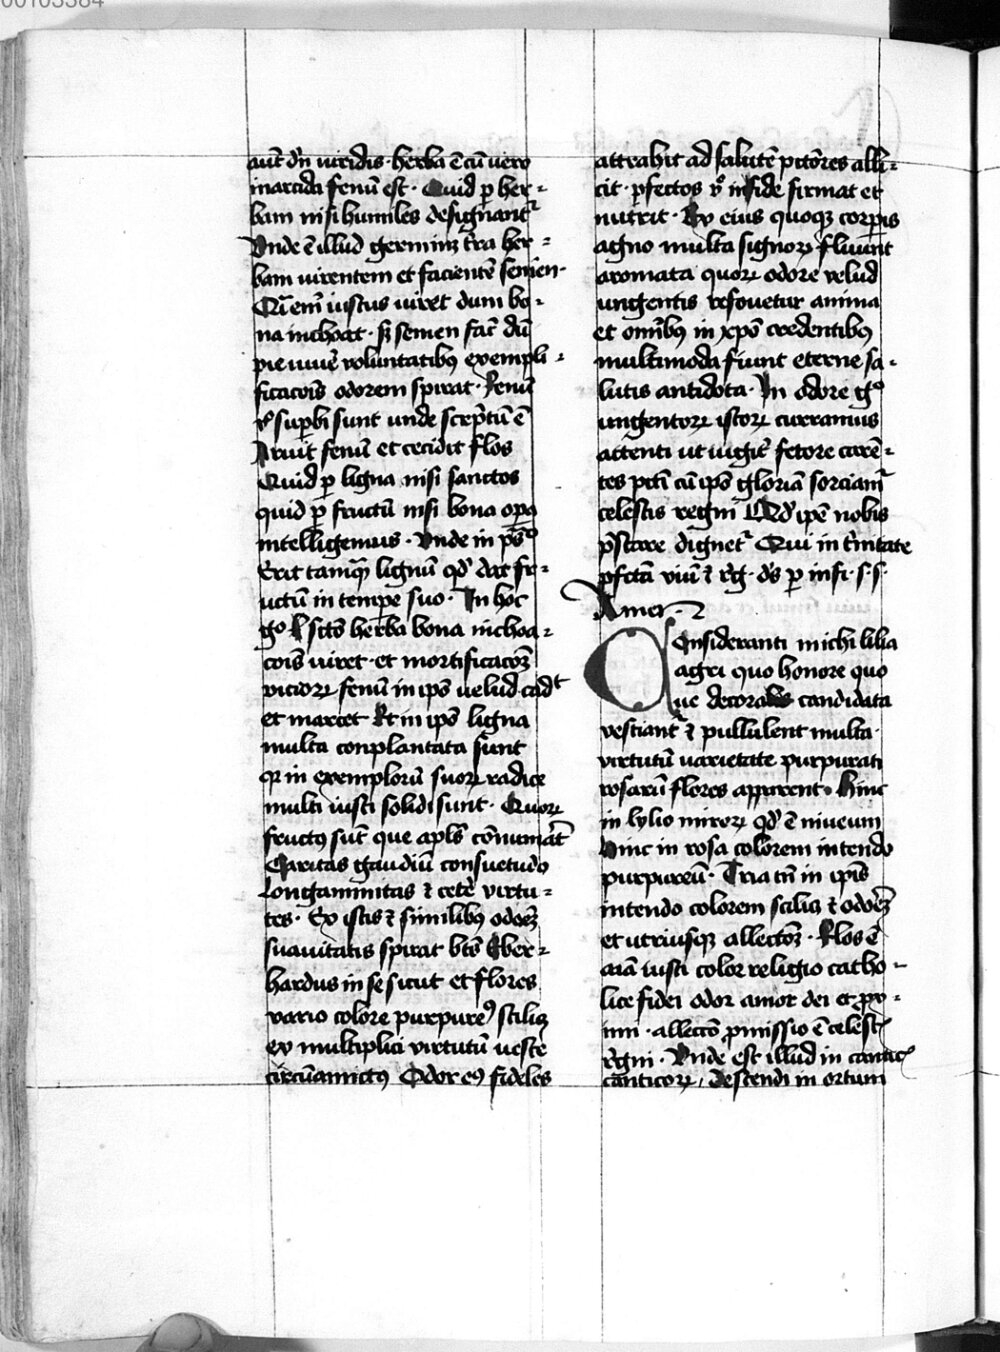 00103384
aut̄ dn̄ viridis · herba ē cū vero
marcida fenū est · Quid ꝑ her-
bam nisi humiles designant᷑
Vnde ē illud germinꝫ t̄ra her-
bam virentem et facientē semen ·
Qm̄ em̄ iustus viret dum bo-
na inchoat · sꝫ semen fac̄ dū
pie
voluntatibꝫ exempli-
ficacōis odorem spirat · Fenū
v̊ suꝑbi sunt unde scp̄tū ē
Aruit fenū et cecidit flos
Quid ꝑ ligna nisi sanctos
quid ꝑ fructū nisi bona oꝑa
intelligemus · Vnde in ps̊
Erit tamqͣ lignū qd̓ dat fr-
uctū in temꝑe suo · In hoc
gͦ sctō herba bona inchoa-
cōis viret · et mortificacōꝫ
vicioꝝ fenū in ip̄o velud cadᵗ
et marcet Et in ip̄o ligna
multa conplantata sunt
qꝛ in exemploꝝ suoꝝ radice
multi iusti solidi sunt · Quoꝝ
fructꝯ sūt que apl̄s cōnumāt
Caritas gaudiū consuetudo
longanimitas ⁊ cetē virtu-
tes · Ex istis ⁊ similibꝫ odoꝝ
suauitatis spirat bt̄s Eber-
hardus in se sicut et flores
vario colore purpureꝯ scilicꝫ
ex multiplici virtutū veste
circūamictꝯ Odor eꝯ fideles
attrahit ad salutē pctōres alli-
cit · ꝑfectos v̊ in fide firmat et
nutrit · Ex eius quoqꝫ corꝑis
agno multa signoꝝ fluunt
aromata quoꝝ odore velud
ungentis refouetur anima
et om̄ibꝫ in xp̄o credentibꝫ
multimoda fiunt eterne sa-
lutis antidota · In odore gͦ
ungentoꝝ istoꝝ curramus
attenti ut
fetore carē-
tes pcti cū ip̄o gloriā sorciam᷑
celestis regni Qd̓ ip̄e nobis
p̄stare dignet᷑ Qui in t̄nitate
ꝑfcta viuit ⁊ rḡ · ds̄ ꝑ infi · s · s ·
Amen ·
Consideranti michi lilia
agri quo honore quo
ue decora candidata
vestiant᷑ ⁊ pullulent multa
virtutū varietate purpurati
rosarū flores apparent · Hinc
in lylio miroꝝ qd̓ ē niueum
hinc in rosa colorem intendo
purpureū · Tria tn̄ in ip̄is
intendo colorem scilicꝫ ⁊ odoꝝ
et utriusqꝫ allectōꝫ · Flos ē
aīa iusti color religio catho-
lice fidei odor amor dei et pro-
imi · allectō ꝓmissio ē celest̄
rēgni · Vnde est illud in cantic̄
canticoꝝ , Descendi in ortum